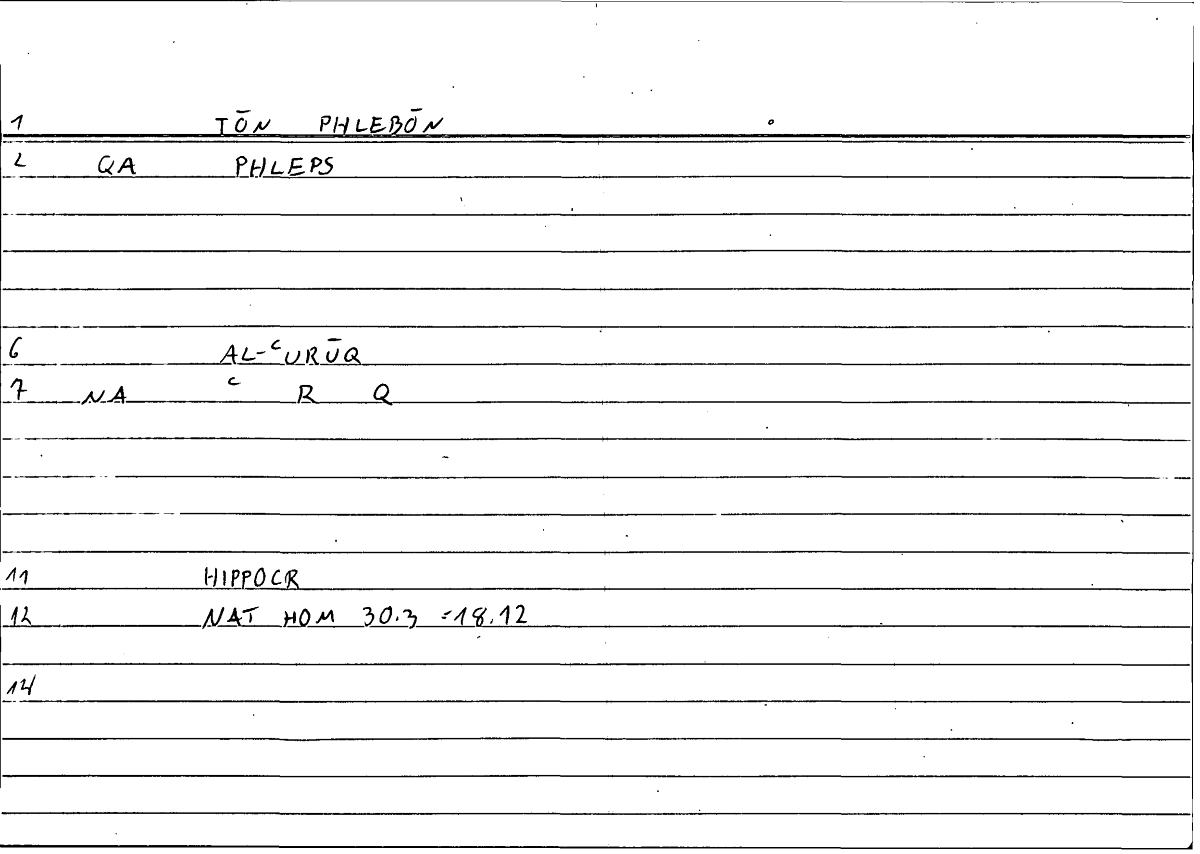 1 TŌN PHLEBŌN
2 QA PHLEPS
6 AL-ʿURŪQ
7 NA ʿ R Q
11 HIPPOCR
12 NAT HOM 30.3 =18.12
14